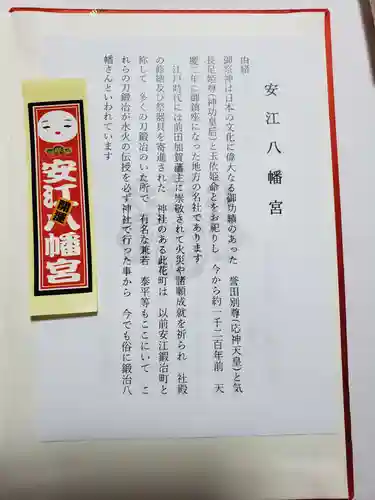 安江八幡宮
由緒
御祭神は日本の文化に偉大なる御功績のあった　誉田別尊(応神天皇)と気
長足姫尊(神功皇后)と玉依姫命とをお祀りし　今から約一千二百年前　天
慶二年に御鎮座になった地方の名社であります
江戸時代には前田加賀藩主に崇敬されて火災や諸願成就を祈られ　社殿
の修繕及び祭器具を寄進された　神社のある此花町は　以前安江鍛冶町と
称して　多くの刀鍛冶のいた所で　有名な兼若　泰平等もここにいて　こ
れらの刀鍛冶が水火の伝授を必ず神社で行った事から　今でも俗に鍛冶八
幡さんといわれています
安江八幡宮